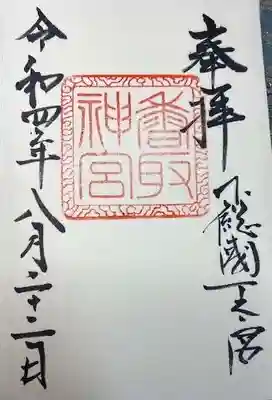 奉拝
下総國一之宮
香取
神宮
令和四年八月二十二日